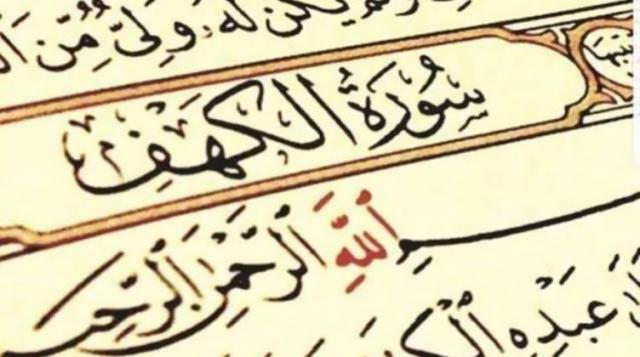 يَكُن لَّهُ وَلِيٌّ مِّنَ
سُورَةُ الكَهْفِ
ٱللَّهِ ٱلرَّحْمَٰنِ
عَبْدِهِ